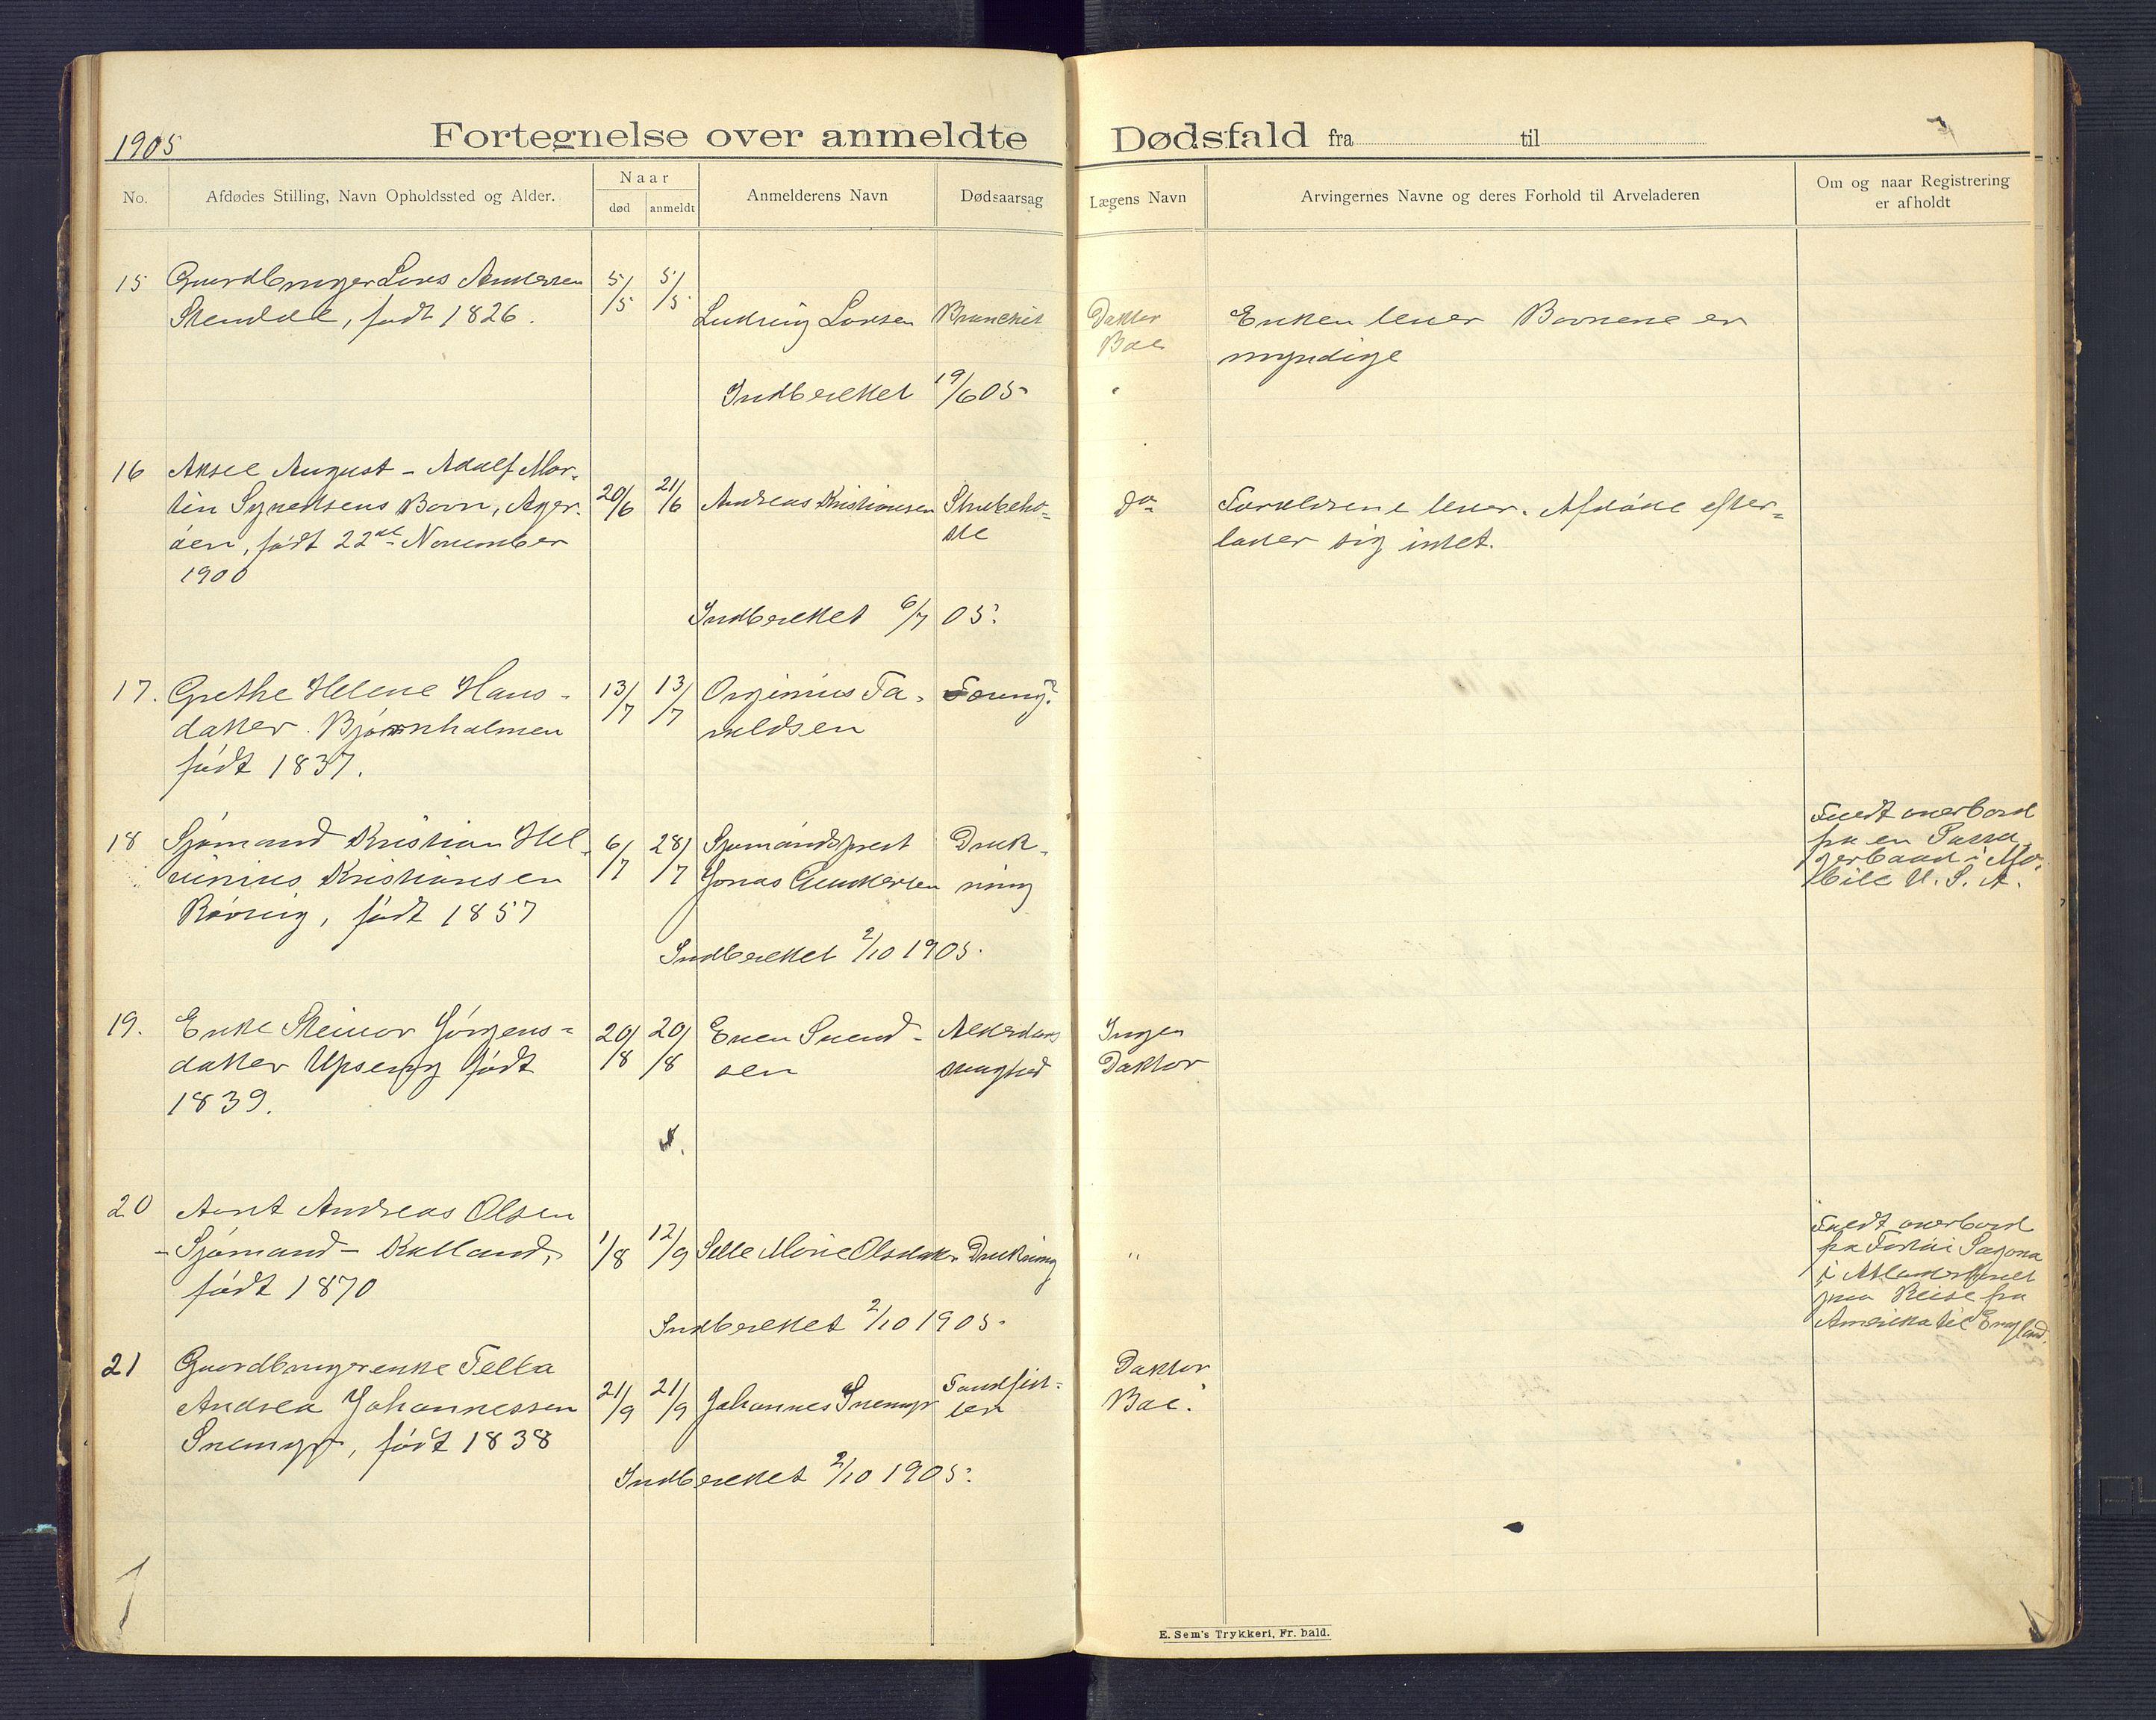 1905
Fortegnelse over anmeldte Dødsfald fra til
No.
Afdødes Stilling, Navn Opholdssted og Alder.
Naar
død
anmeldt
Anmelderens Navn
Dødsaarsag
Lægens Navn
Arvingernes Navne og deres Forhold til Arveladeren
Om og naar Registrering
er afholdt
15 Gaardbruger Lars Andersen 5/5 5/5
Stendal, født 1826. Ludvig Larsen Bronchit Doktor Enken lever Børnene er
Boe myndige
Indberettet 19/6 05
16 Aksel August - Adolf Mar-
tin Syvertsens Barn, Ager- 20/6 21/6 Andreas Kristiansen Strubeho- do Forældrene lever. Afdøde efter-
øen, født 22de November ste lader sig intet.
1900
Indberettet 6/7 05.
17. Grethe Helene Hans- 13/7 13/7 Orginius Ta-
datter. Bjørnholmen raldsen
født 1837.
Faldt overbord
fra en Passa-
18 Sjømand Kristian Hel- 6/7 28/7 Sjømandsprest Druk- gerbaad i Mo-
vinius Kristiansen Jonas Gundersen ning bile U. S. A.
Røsvig, født 1857
Indberettet 2/10 1905.
19. Enke Steinor Jørgens- 20/8 20/8 Even Svend- Alderdoms Ingen
datter Upseng født sen svaghed Doktor
1839.
20 Arnt Andreas Olsen Faldt overbord
- Sjømand - Kalland, 1/8 12/9 Selle Marie Olsdatter Drukning " fra Fartøi Sagona
født 1870 i Atlanterhavet
paa Reise fra
Indberettet 2/10 1905. Amerika til England.
21 Gaardbrugerenke Tella Doktor
Andrea Johannessen 21/9 21/9 Johannes Snemyr Boe.
Snemyr, født 1838
Indberettet 2/10 1905.
E. Sem's Trykkeri, Fr.hald.